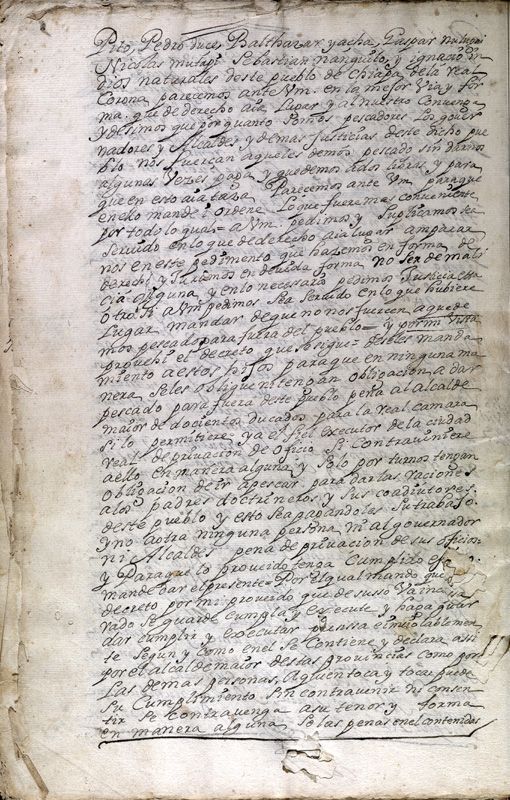 Pito, Pedro duce, Balthazar yacha, Gaspar
Nicolas mutapi Sebastian nanguilo, y ignacio in
dios naturales deste pueblo de chiapa de la real
Corona parecemos ante Vm. en la mejor Via y for
ma, que de derecho aia Lugar y al nuestro Convenga
y desimos que por quanto somos pescadores Los gover
nadores y Alcaldes y demas Justicias deste dicho pue
blo nos fuerçan aqueles demos pescado sin darnos
algunas Vezes paga y quedemos todas horas y para
que en esto aia taza Parecemos ante Vm paraque
en ello mande i Ordene Lo que fuere mas conveniente
por todo lo qual = a Vm pedimos y Suplicamos sea
servido en lo que de derecho aia lugar amparar
nos en este pedimento que hazemos en forma de
derecho y Juramos en devida forma no ser de mali
cia alguna y en lo necesario pedimos Justicia
Otro si a Vm pedimos sea servido en lo que hubiere
Lugar mandar de que no nos fuercen a que de
mos pescado para fuera del pueblo = y por mi Vista
provehi el decreto que se sigue = deseles manda
miento a estos hijos para que en ninguna ma
nera seles obligue ni tengan obligacion a dar
pescado para fuera deste pueblo pena al alcalde
maior de docientos ducados para la real camara
si lo permitiere ya el fiel executor de la ciudad
real de privacion de oficio si contraviniere
a ello en manera alguna y solo por turnos tengan
obligacion de ir apescar para dar las raciones
alos padres doctrineros y sus coadiutores
deste pueblo y esto sea pagandoles su trabajo
y no a otra ninguna persona ni al governador
ni Alcaldes pena de privacion de sus oficios
y Para que lo proveido tenga Cumplido
mande dar el presente = Por El qual mando que
decreto por mi proveido que de suso Va
rado se guarde cumpla y execute y haga guar
dar cumplir y executar precissa e imbiolablemen
te segun y como en el se Contiene y declara assi
por el alcalde maior destas provincias como por
Las demas personas, a quien toca y tocar puede
su Cumplimiento sin contravenir ni consen
tir se contravenga a su tenor y forma
en manera alguna so las penas en el contenidas